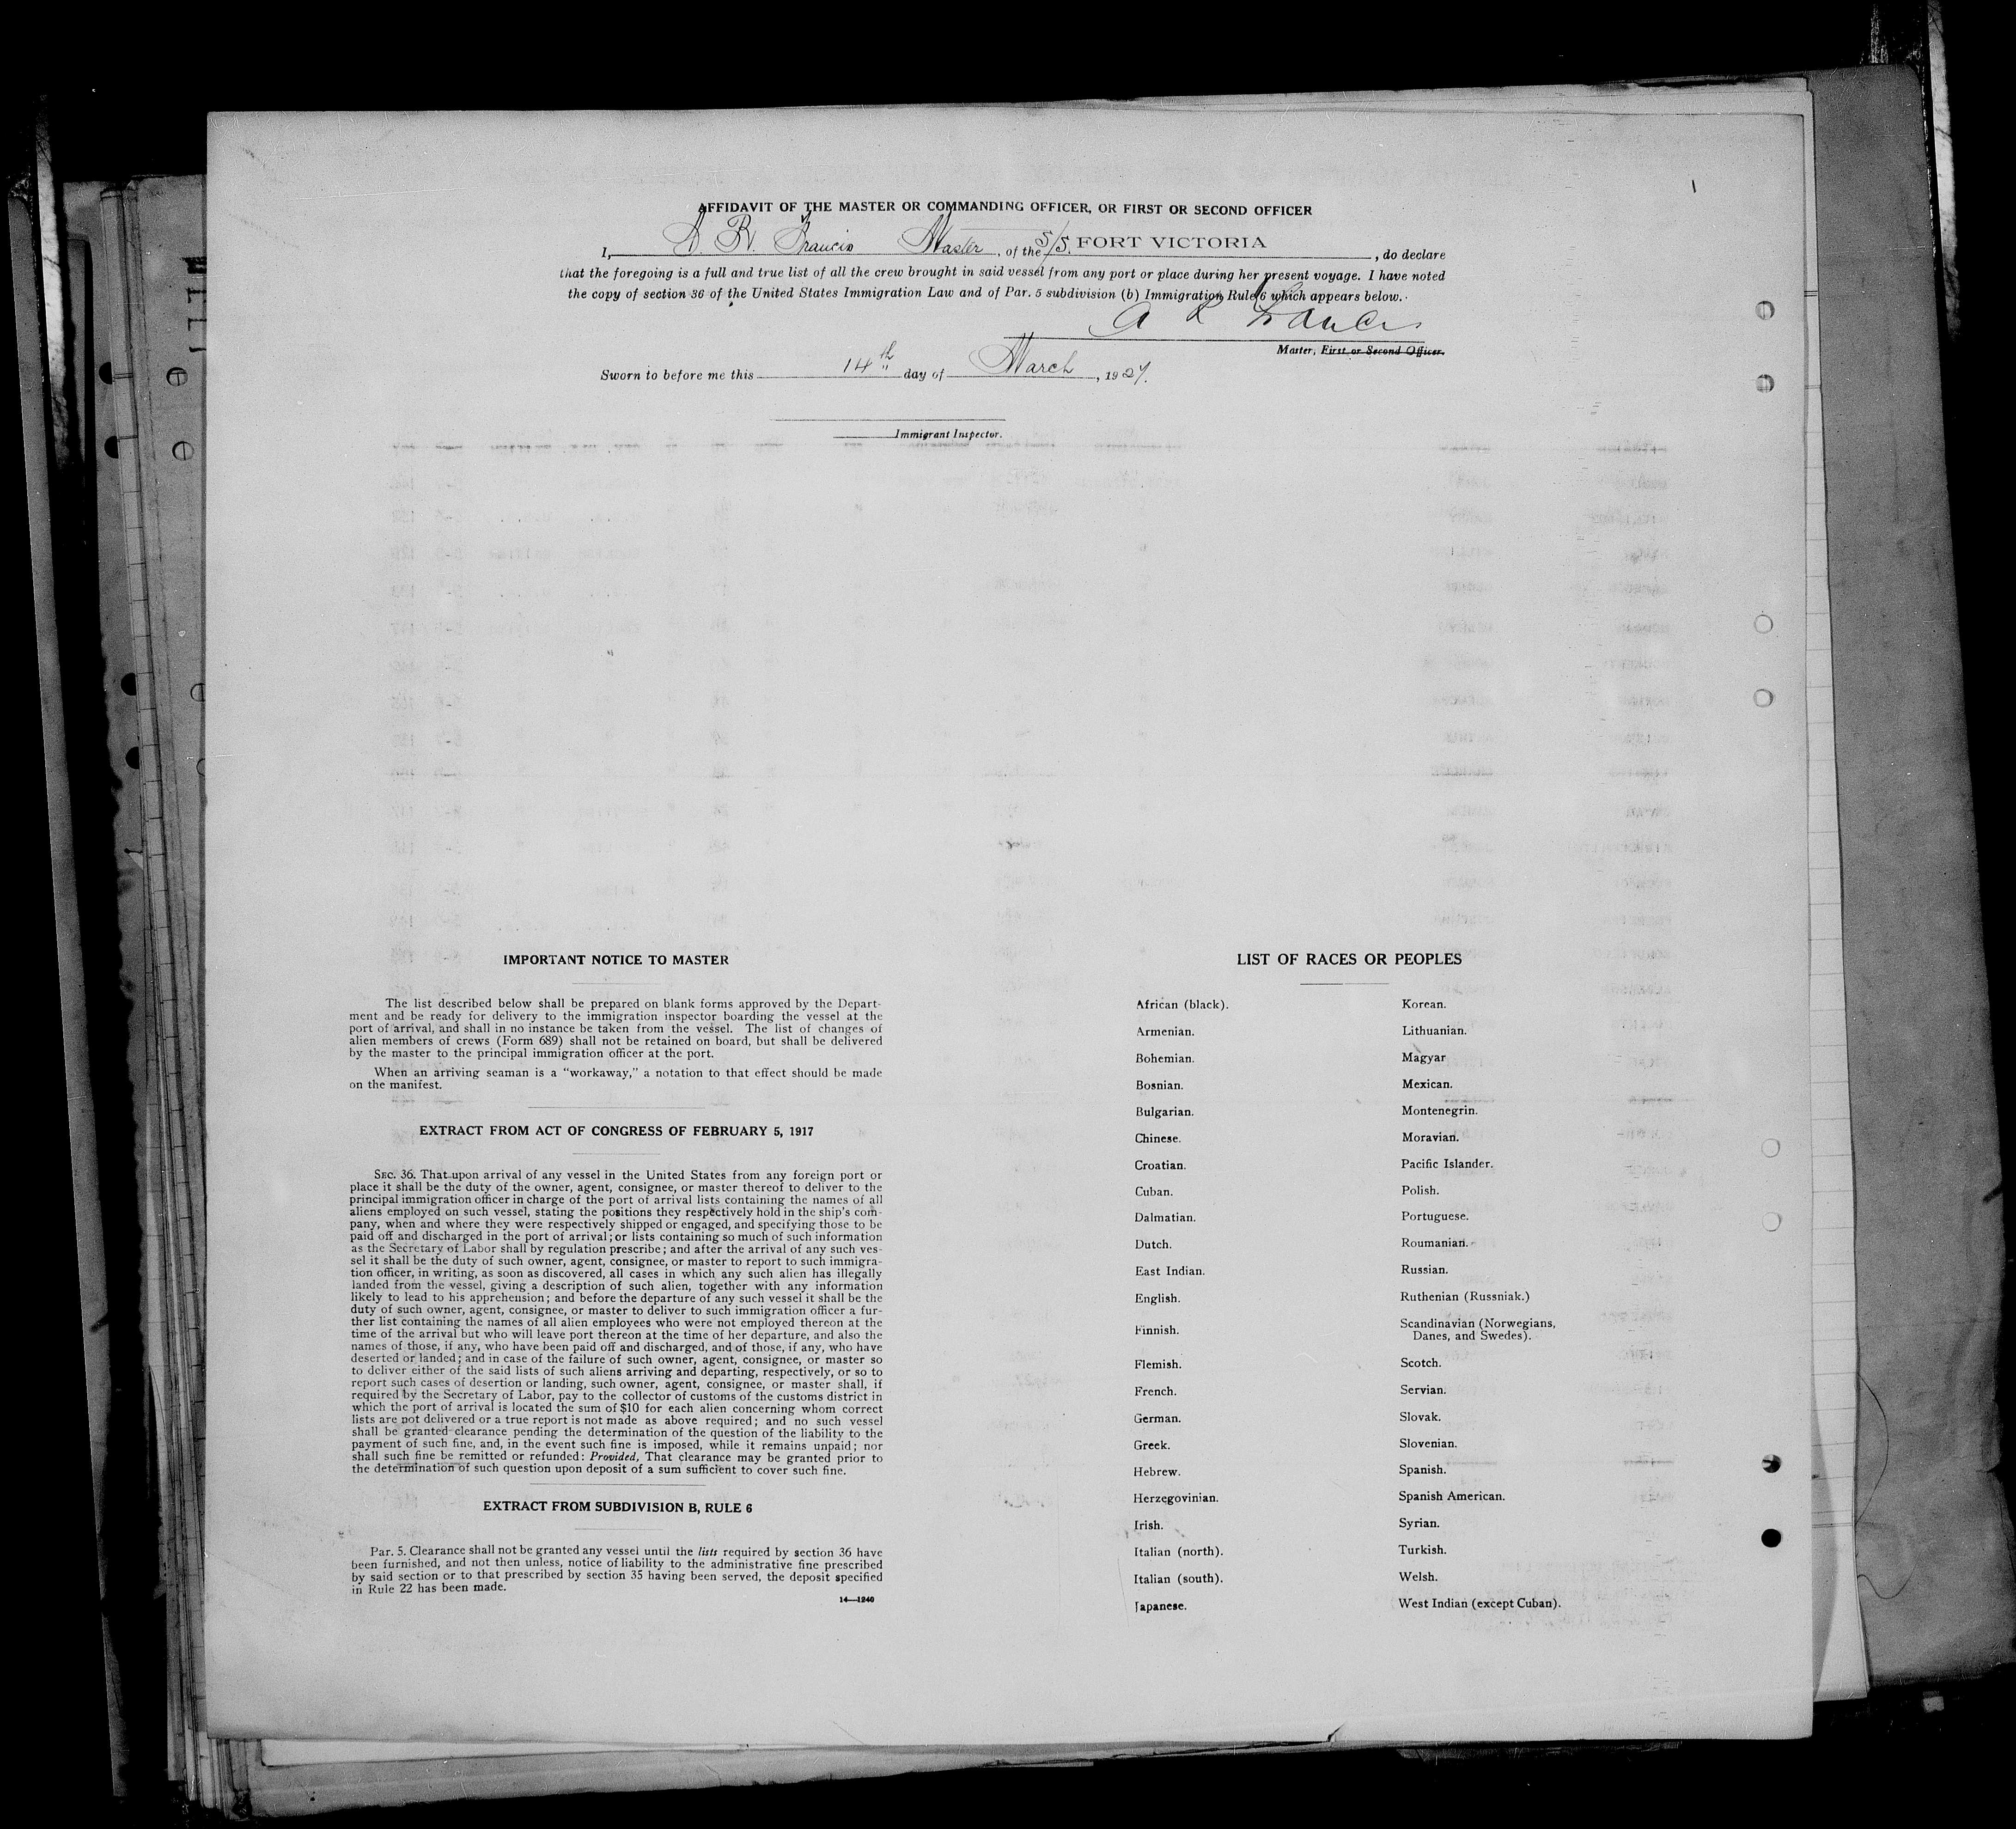 AFFIDAVIT OF THE MASTER OR COMMANDING OFFICER, OR FIRST OR SECOND OFFICER
I, A. R. Francis Master, of the S/S. FORT VICTORIA, do declare
that the foregoing is a full and true list of all the crew brought in said vessel from any port or place during her present voyage. I have noted
the copy of section 36 of the United States Immigration Law and of Par. 5 subdivision (b) Immigration Rule 6 which appears below.
A R Francis
Master, First or Second Officer.
Sworn to before me this 14th day of March, 1927.
Immigrant Inspector.
IMPORTANT NOTICE TO MASTER
The list described below shall be prepared on blank forms approved by the Depart-
ment and be ready for delivery to the immigration inspector boarding the vessel at the
port of arrival, and shall in no instance be taken from the vessel. The list of changes of
alien members of crews (Form 689) shall not be retained on board, but shall be delivered
by the master to the principal immigration officer at the port.
When an arriving seaman is a "workaway," a notation to that effect should be made
on the manifest.
EXTRACT FROM ACT OF CONGRESS OF FEBRUARY 5, 1917
SEC. 36. That upon arrival of any vessel in the United States from any foreign port or
place it shall be the duty of the owner, agent, consignee, or master thereof to deliver to the
principal immigration officer in charge of the port of arrival lists containing the names of all
aliens employed on such vessel, stating the positions they respectively hold in the ship's com-
pany, when and where they were respectively shipped or engaged, and specifying those to be
paid off and discharged in the port of arrival; or lists containing so much of such information
as the Secretary of Labor shall by regulation prescribe; and after the arrival of any such ves-
sel it shall be the duty of such owner, agent, consignee, or master to report to such immigra-
tion officer, in writing, as soon as discovered, all cases in which any such alien has illegally
landed from the vessel, giving a description of such alien, together with any information
likely to lead to his apprehension; and before the departure of any such vessel it shall be the
duty of such owner, agent, consignee, or master to deliver to such immigration officer a fur-
ther list containing the names of all alien employees who were not employed thereon at the
time of the arrival but who will leave port thereon at the time of her departure, and also the
names of those, if any, who have been paid off and discharged, and of those, if any, who have
deserted or landed; and in case of the failure of such owner, agent, consignee, or master so
to deliver either of the said lists of such aliens arriving and departing, respectively, or so to
report such cases of desertion or landing, such owner, agent, consignee, or master shall, if
required by the Secretary of Labor, pay to the collector of customs of the customs district in
which the port of arrival is located the sum of $10 for each alien concerning whom correct
lists are not delivered or a true report is not made as above required; and no such vessel
shall be granted clearance pending the determination of the question of the liability to the
payment of such fine, and, in the event such fine is imposed, while it remains unpaid; nor
shall such fine be remitted or refunded: Provided, That clearance may be granted prior to
the determination of such question upon deposit of a sum sufficient to cover such fine.
EXTRACT FROM SUBDIVISION B, RULE 6
Par. 5. Clearance shall not be granted any vessel until the lists required by section 36 have
been furnished, and not then unless, notice of liability to the administrative fine prescribed
by said section or to that prescribed by section 35 having been served, the deposit specified
in Rule 22 has been made.
14—1240
LIST OF RACES OR PEOPLES
African (black).
Armenian.
Bohemian.
Bosnian.
Bulgarian.
Chinese.
Croatian.
Cuban.
Dalmatian.
Dutch.
East Indian.
English.
Finnish.
Flemish.
French.
German.
Greek.
Hebrew.
Herzegovinian.
Irish.
Italian (north).
Italian (south).
Japanese.
Korean.
Lithuanian.
Magyar
Mexican.
Montenegrin.
Moravian.
Pacific Islander.
Polish.
Portuguese.
Roumanian.
Russian.
Ruthenian (Russniak.)
Scandinavian (Norwegians,
Danes, and Swedes).
Scotch.
Servian.
Slovak.
Slovenian.
Spanish.
Spanish American.
Syrian.
Turkish.
Welsh.
West Indian (except Cuban).